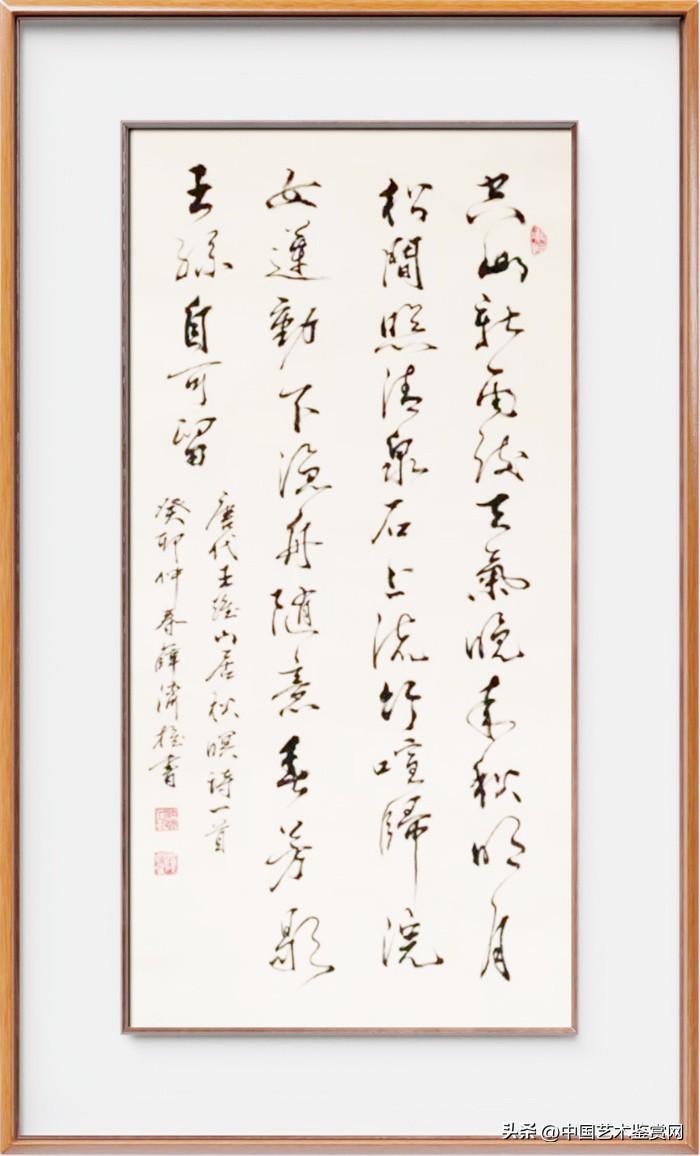 空山新雨後天氣晚来秋明月
松間照清泉石上流竹喧歸浣
女蓮動下漁舟随意春芳歇
王孫自可留
唐代王維山居秋暝诗一首
癸卯仲春薛濟書
头条 @中国艺术鉴赏网